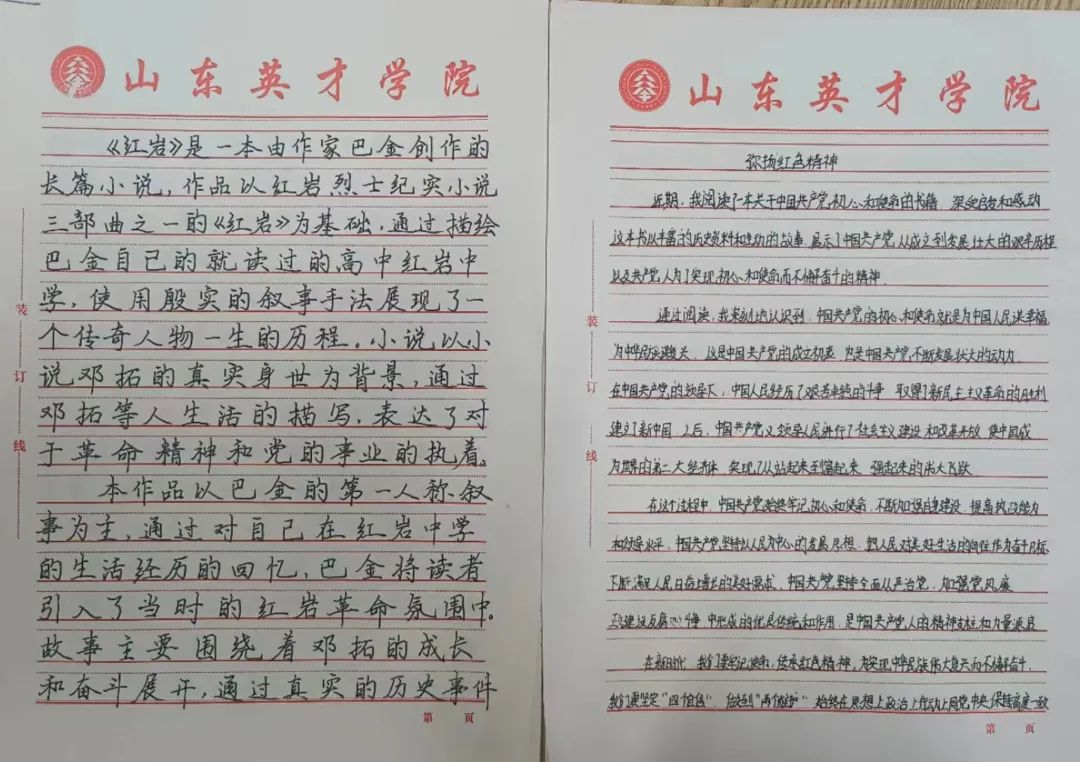 山东英才学院
《红岩》是一本由作家巴金创作的
长篇小说，作品以红岩烈士纪实小说
三部曲之一的《红岩》为基础，通过描绘
巴金自己的就读过的高中红岩中
学，使用殷实的叙事手法展现了一
个传奇人物一生的历程。小说以小
说邓拓的真实身世为背景，通过
邓拓等人生活的描写，表达了对
于革命精神和党的事业的执着。
本作品以巴金的第一人称、叙
事为主，通过对自己在红岩中学
的生活经历的回忆，巴金将读者
引入了当时的红岩革命氛围中。
故事主要围绕着邓拓的成长
和奋斗展开，通过真实的历史事件
装
订
线
第 页
山东英才学院
弥扬红色精神
近期，我阅读了一本关于中国共产党初心和使命的书籍 深受启发和感动
这本书以丰富的历史资料和生动的故事，展示了中国共产党从成立到发展壮大的艰辛历程
以及共产党人为了实现初心和使命而不懈奋斗的精神.
通过阅读，我深刻地认识到，中国共产党的初心和使命就是为中国人民谋幸福
为中华民族谋复兴 这是中国共产党的成立初衷 也是中国共产党不断发展壮大的动力
在中国共产党的领导下，中国人民经历了艰苦卓绝的斗争 取得了新民主主义革命的胜利
建立了新中国 之后，中国共产党又领导人民进行了社会主义建设和改革开放 使中国成
为世界的第二大经济体 实现了从站起来到富起来 强起来的伟大飞跃
在这个过程中，中国共产党始终牢记初心和使命，不断加强自身建设，提高执政能力
和领导水平，中国共产党坚持以人民为中心的发展思想，把人民对美好生活的向往作为奋斗目标
不断满足人民日益增长的美好需求，中国共产党坚持全面从严治党，加强党风廉
政建设反腐 斗争 中形成的优良传统和作用，是中国共产党人的精神支柱和力量源泉
在新时代，我们要牢记使命，传承红色精神，为实现中华民族伟大复兴而不懈奋斗，
我们要坚定“四个自信” 做到“两个维护” 始终在思想上政治上行动上同党中央保持高度一致
装
订
线
第 页